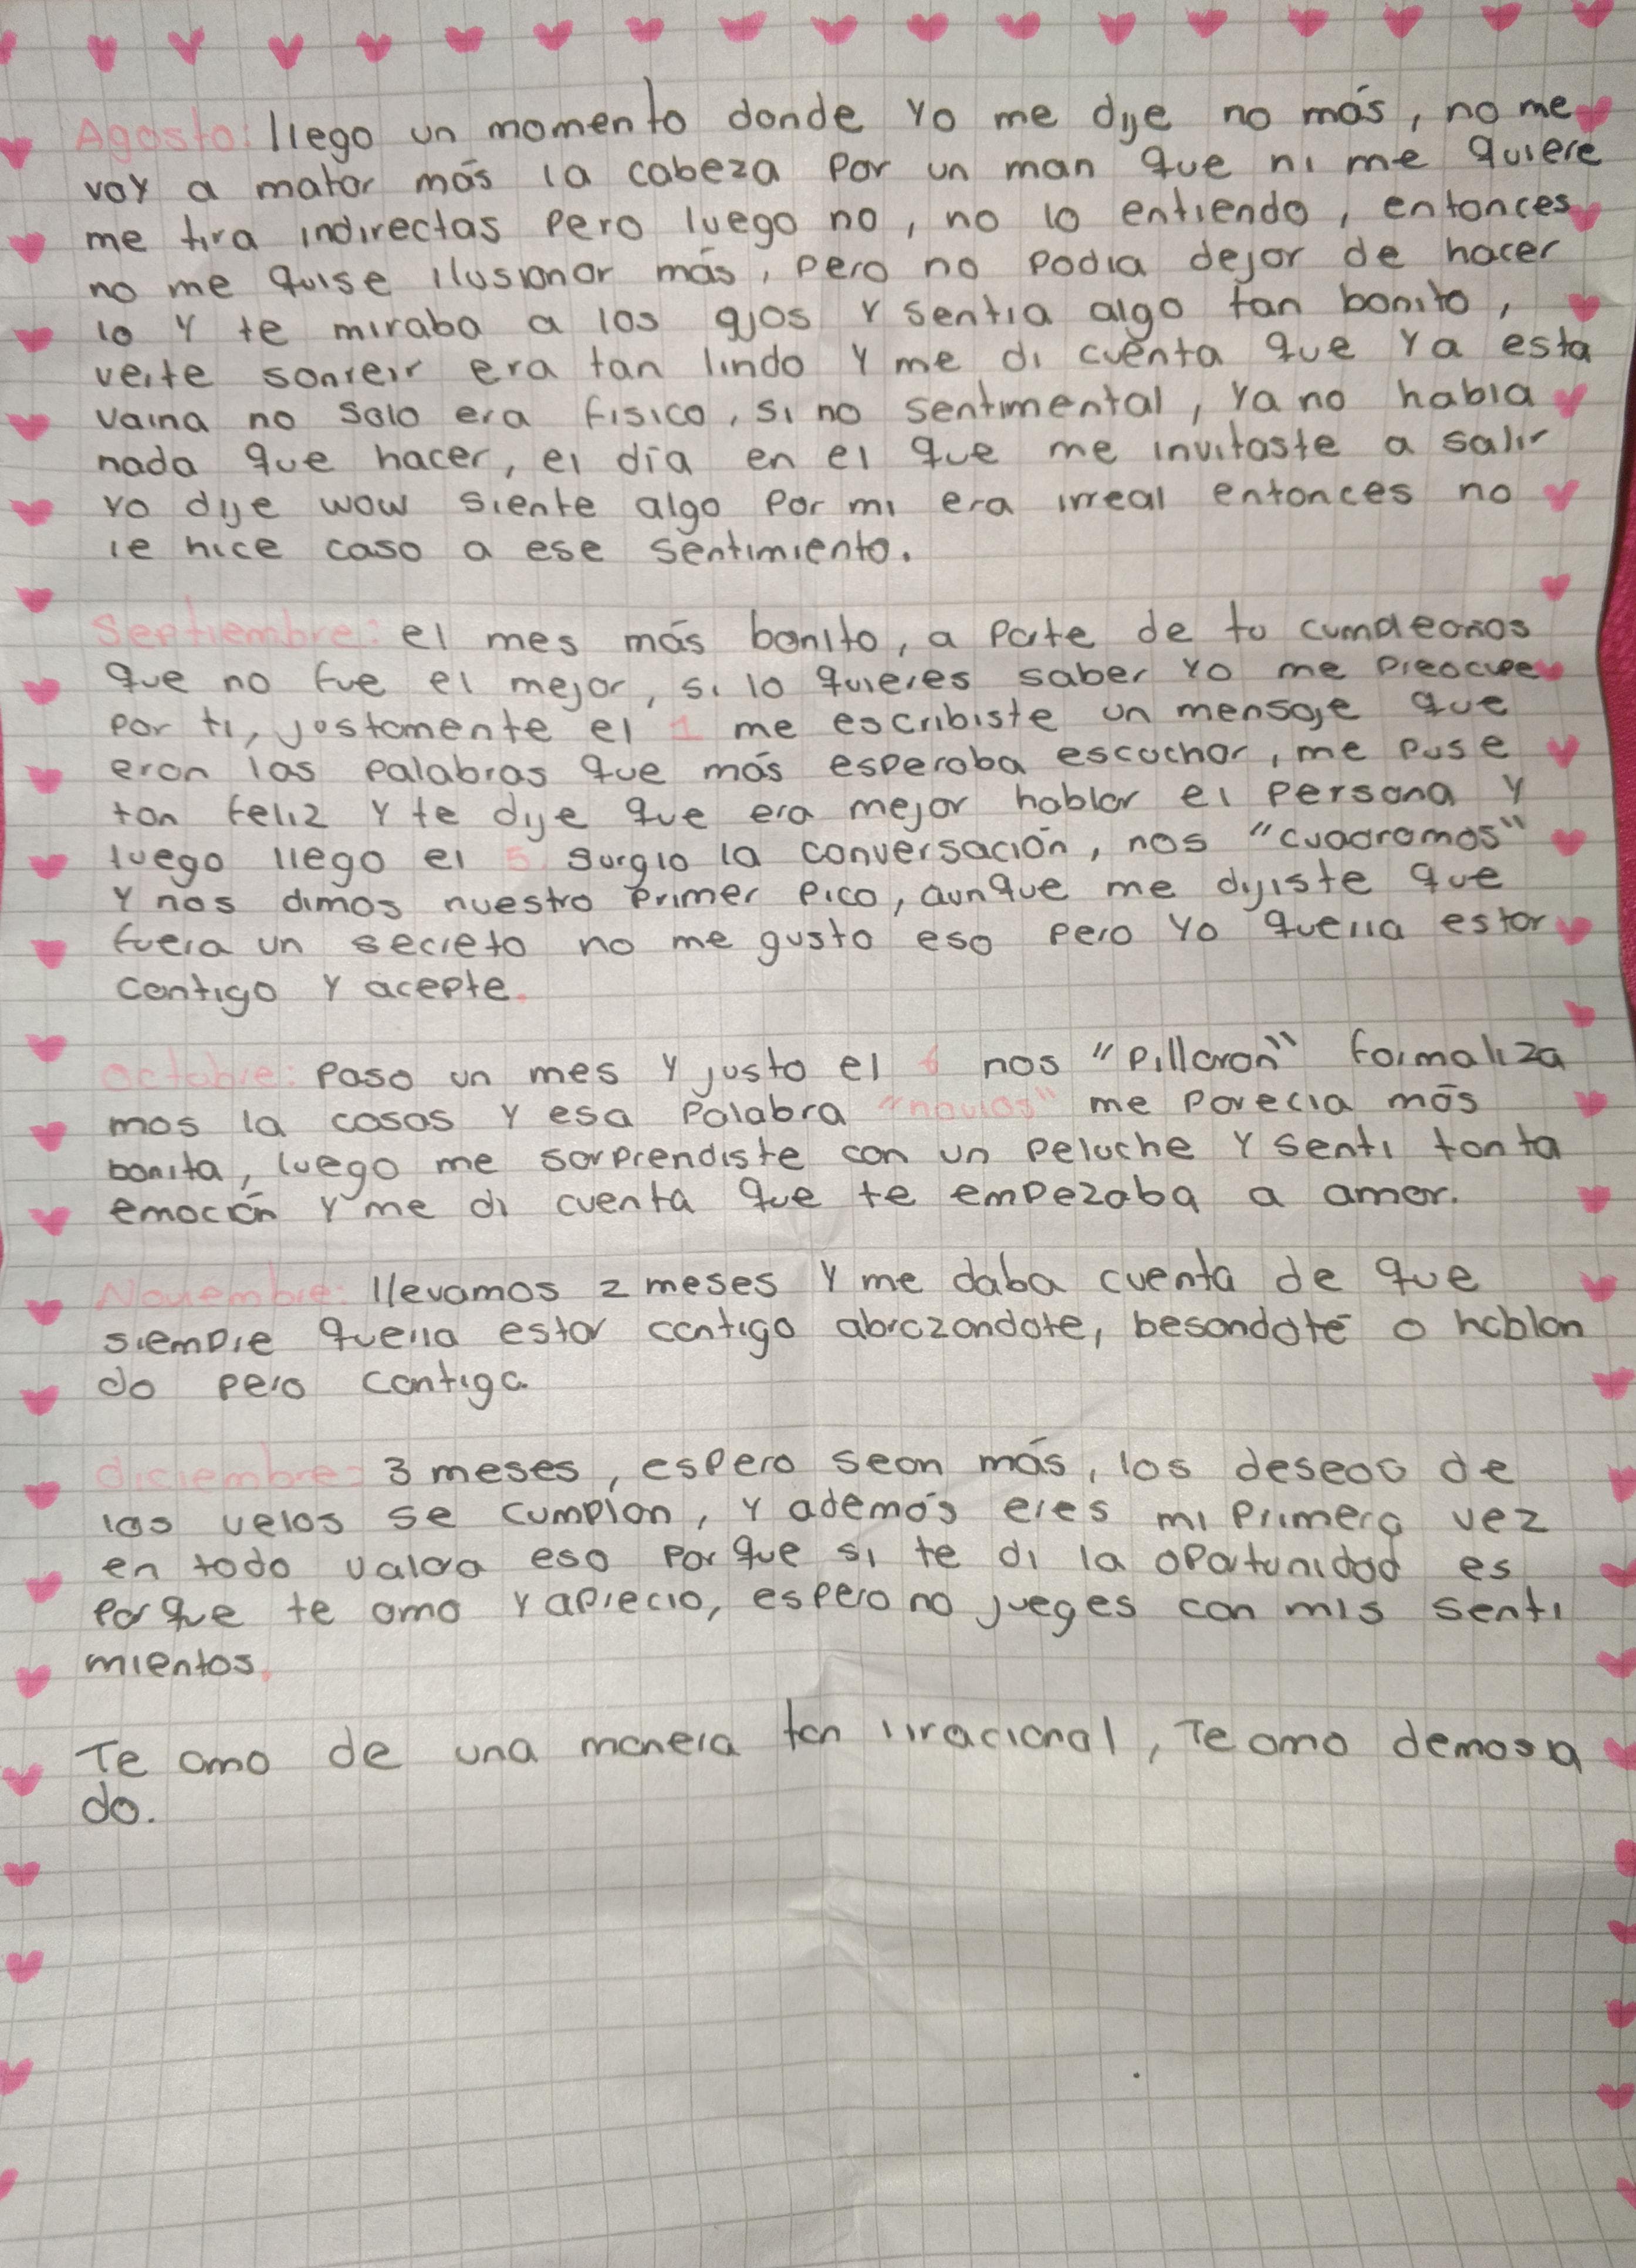 Agosto: llego un momento donde yo me dije no más, no me
voy a matar más la cabeza por un man que ni me quiere
me tira indirectas pero luego no, no lo entiendo, entonces
no me quise ilusionar más, pero no podia dejar de hacer
lo y te miraba a los ojos y sentia algo tan bonito,
verte sonreir era tan lindo y me di cuenta que ya esta
vaina no solo era fisico, si no sentimental, ya no habia
nada que hacer, el día en el que me invitaste a salir
yo dije wow siente algo por mi era irreal entonces no
le hice caso a ese sentimiento.
Septiembre: el mes más bonito, a parte de tu cumpleaños
que no fue el mejor, si lo quieres saber yo me preocupe
por ti, justamente el 1 me escribiste un mensaje que
eran las palabras que más esperaba escuchar, me puse
tan feliz y te dije que era mejor hablar el persona y
luego llego el 5 surgio la conversación, nos "cuadramos"
y nos dimos nuestro primer pico, aunque me dijiste que
fuera un secreto no me gusto eso pero yo queria estar
contigo y acepte.
Octubre: Paso un mes y justo el 6 nos "pillaron" formaliza
mos la cosas y esa palabra "novios" me parecia más
bonita, luego me sorprendiste con un peluche y senti tanta
emoción y me di cuenta que te empezaba a amar.
Noviembre: llevamos 2 meses y me daba cuenta de que
siempre queria estar contigo abrazandote, besandote o hablan
do pero contigo.
diciembre: 3 meses, espero sean más, los deseos de
las velas se cumplan, y además eres mi primera vez
en todo valora eso por que si te di la oportunidad es
por que te amo y aprecio, espero no jueges con mis senti
mientos.
Te amo de una manera tan irracional, Te amo demasia
do.